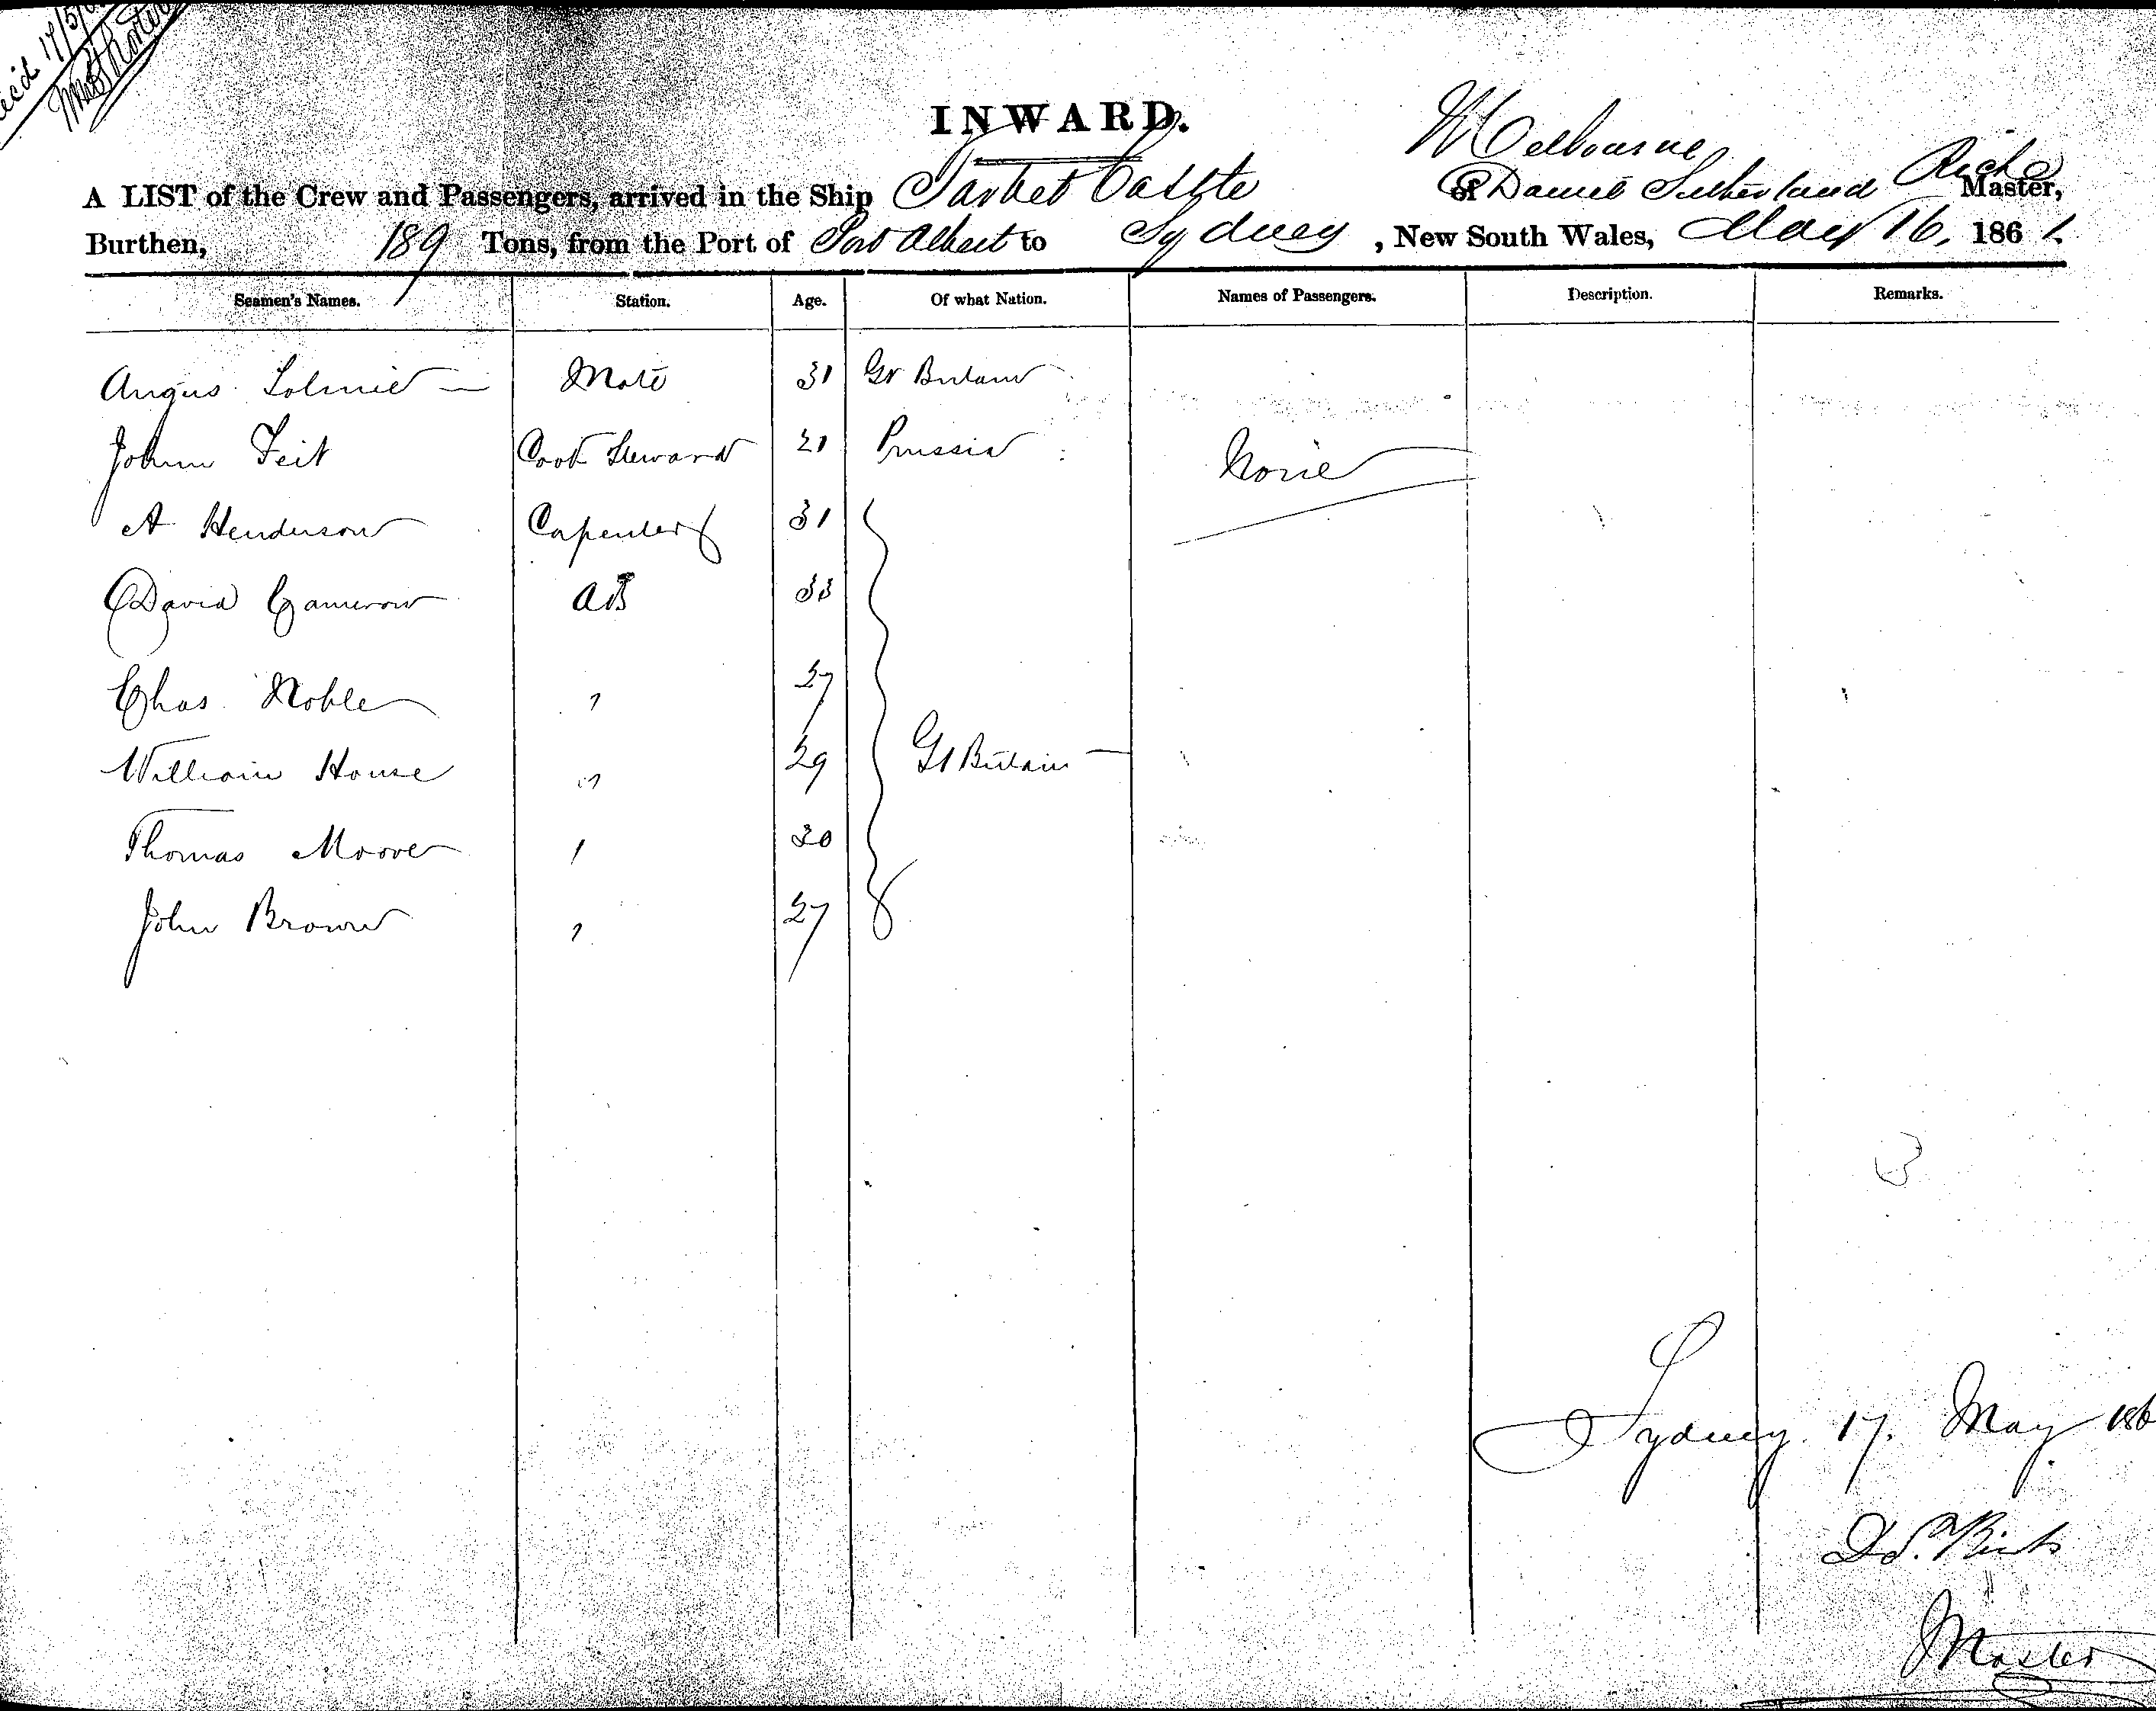 INWARD.
Melbourne
A LIST of the Crew and Passengers, arrived in the Ship Tarbet Castle of Daniel Sutherland Master,
Burthen, 189 Tons, from the Port of Port Albert to Sydney, New South Wales, May 16, 1861.
Seamen's Names. Station. Age. Of what Nation. Names of Passengers. Description. Remarks.
Angus Mate 31 Gr Britain
Cook Steward 21 Prussia None
A Henderson Carpenter 31
David Cameron AB 33
Chas. Noble " 27
William House " 29 Gt Britain
Thomas Moore " 20
John Brown " 27
Sydney. 17. May 186
Master